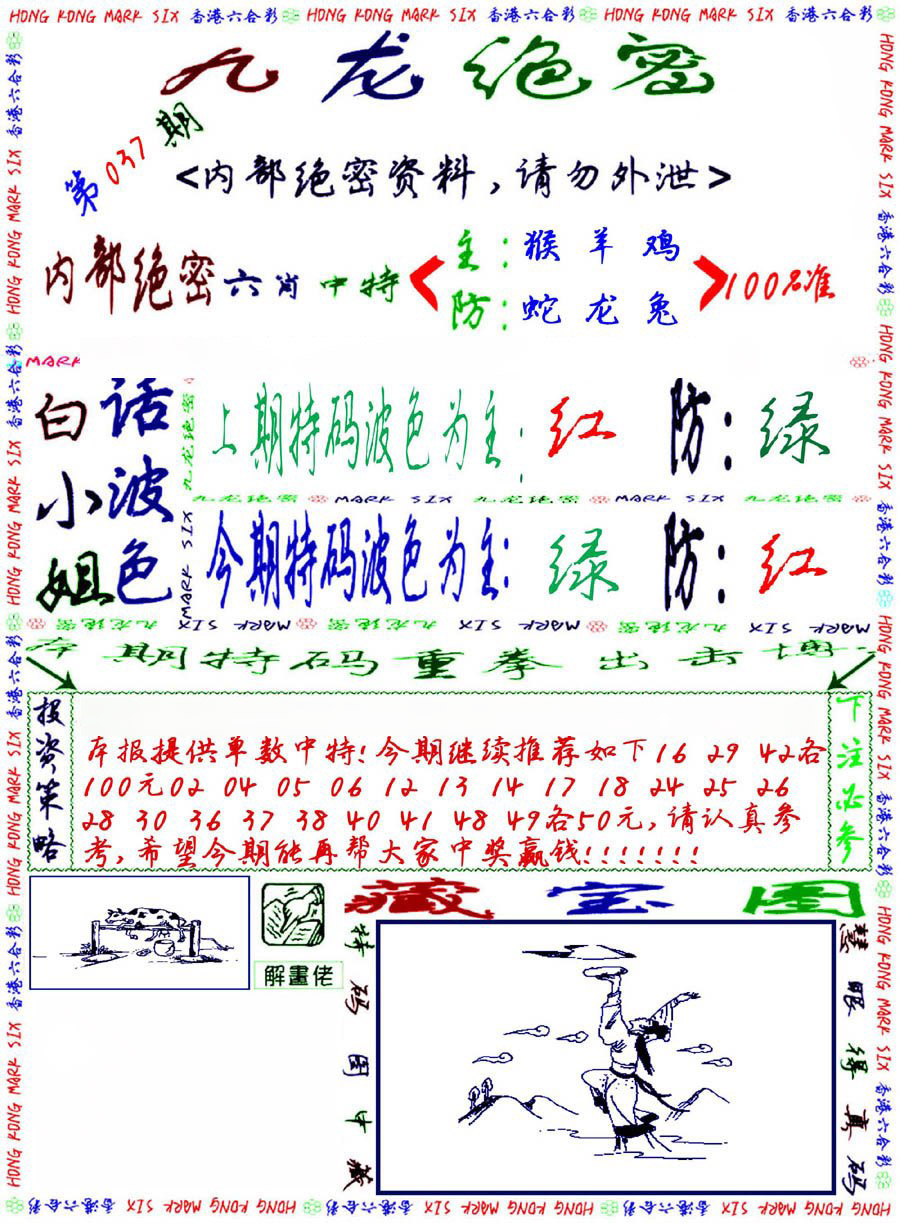 HONG KONG MARK SIX 香港六合彩 HONG KONG MARK SIX 香港六合彩 HONG KONG MARK SIX 香港六合彩
九龙绝密
第037期
<内部绝密资料,请勿外泄>
内部绝密六肖中特
主:猴羊鸡
防:蛇龙兔
100%准
MARK
白话
小波
姐色
上期特码波色为主:红 防:绿
九龙绝密 MARK SIX 九龙绝密 MARK SIX 九龙绝密
今期特码波色为主:绿 防:红
MARK SIX 九龙绝密 MARK SIX 九龙绝密 MARK SIX 九龙绝密
本期特码重拳出击博
投资策略
本报提供单数中特!今期继续推荐如下16 29 42各
100元02 04 05 06 12 13 14 17 18 24 25 26
28 30 36 37 38 40 41 48 49各50元,请认真参
考,希望今期能再帮大家中奖赢钱!!!!!!!
下注必参
解畫佬
藏宝图
特码图中藏
慧眼得真码
HONG KONG MARK SIX 香港六合彩 HONG KONG MARK SIX 香港六合彩 HONG KONG MARK SIX 香港六合彩